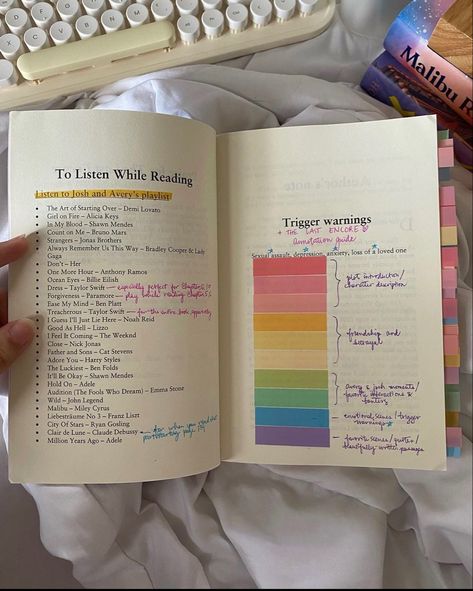 To Listen While Reading
Listen to Josh and Avery's playlist
The Art of Starting Over – Demi Lovato
Girl on Fire – Alicia Keys
In My Blood – Shawn Mendes
Count on Me – Bruno Mars
Strangers – Jonas Brothers
Always Remember Us This Way – Bradley Cooper & Lady
Gaga
Don't – Her
One More Hour – Anthony Ramos
Ocean Eyes – Billie Eilish
Dress – Taylor Swift – especially perfect for Chapter 10
Forgiveness – Paramore – play while reading Chapter 5
Ease My Mind – Ben Platt
Treacherous – Taylor Swift – for the entire book apparently
I Guess I'll Just Lie Here – Noah Reid
Good As Hell – Lizzo
I Feel It Coming – The Weeknd
Close – Nick Jonas
Father and Sons – Cat Stevens
Adore You – Harry Styles
The Luckiest – Ben Folds
It'll Be Okay – Shawn Mendes
Hold On – Adele
Audition (The Fools Who Dream) – Emma Stone
Wild – John Legend
Malibu – Miley Cyrus
Liebesträume No 3 – Franz Liszt
City Of Stars – Ryan Gosling
Clair de Lune – Claude Debussy
for when you read the
Million Years Ago – Adele
Trigger warnings
+ THE LAST ENCORE
annotation guide
Sexual assault, depression, anxiety, loss of a loved one
plot introduction/
character description
friendship and
betrayal
avery & josh moments/
favorite interactions &
banters
emotional scenes/trigger
warnings
favorite scenes/quotes/
beautifully written passages
Malibu R